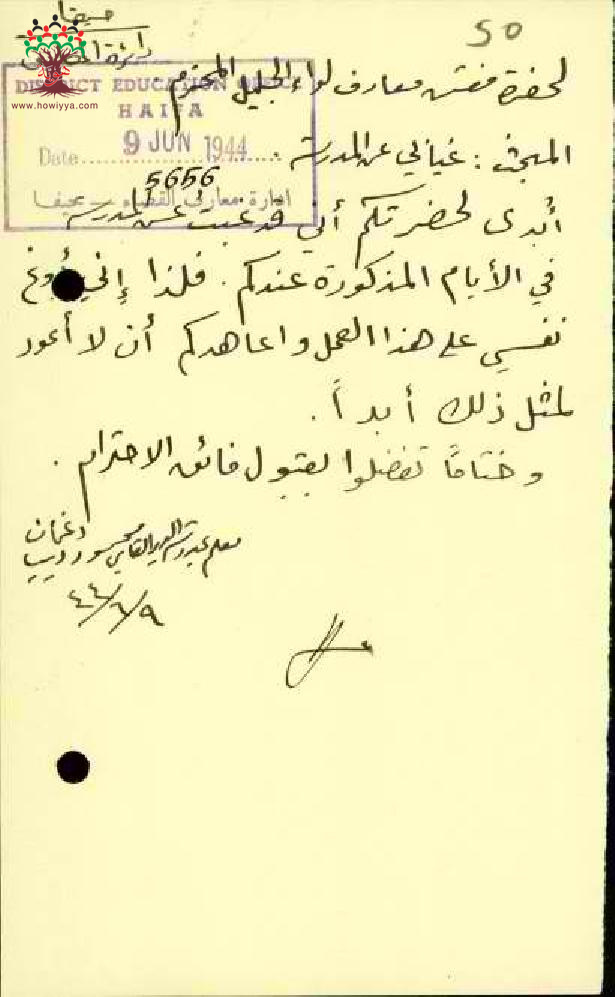 حيفا
50
دائرة
www.howiyya.com
لحضرة مفتش معارف لواء الجليل المحترم
DISTRICT EDUCATION OFFICE
HAIFA
Date 9 JUN 1944
5656
ادارة معارف القضاء – بحيفا
المبحث : غيابي عن المدرسة .
أبدى لحضرتكم أني قد غبت عن المدرسة
في الأيام المذكورة عندكم . فلذا إني أوبخ
نفسي على هذا العمل واعاهدكم أن لا أعود
لمثل ذلك أبداً .
وختاماً تفضلوا بقبول فائق الاحترام .
معلم بمدرسة محمود ديب دغمان
٤٤/٦/٩